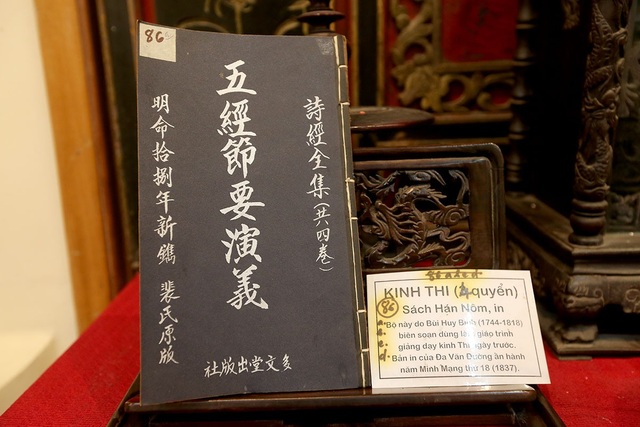 86
詩經全集(共四卷)
五經節要演義
明命拾捌年新鐫 裴氏原版
多文堂出版社
KINH THI (4 quyển)
86
Sách Hán Nôm, in
Bộ này do Bùi Huy Bích (1744-1818)
biên soạn dùng làm giáo trình
giảng dạy kinh Thi ngày trước.
Bản in của Đa Văn Đường ấn hành
năm Minh Mạng thứ 18 (1837).